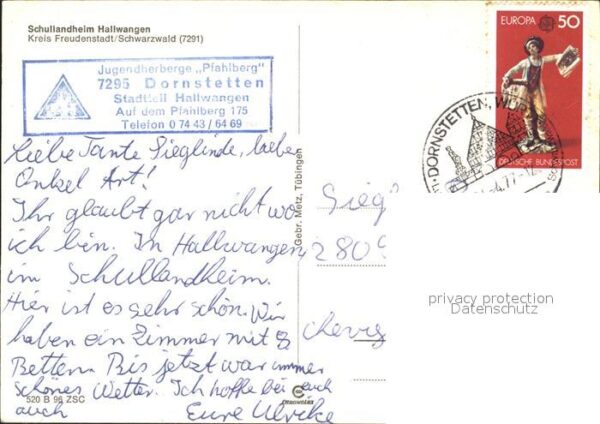 Schullandheim Hallwangen
Kreis Freudenstadt/Schwarzwald (7291)
Jugendherberge „Pfahlberg"
7295 Dornstetten
Stadtteil Hallwangen
Auf dem Pfahlberg 175
Telefon 0 74 43 / 64 69
Liebe Tante Sieglinde, lieber
Onkel Art!
Ihr glaubt gar nicht wo
ich bin. In Hallwangen
im Schullandheim.
Hier ist es sehr schön. Wir
haben ein Zimmer mit 8
Betten. Bis jetzt war immer
schönes Wetter. Ich hoffe bei euch
auch
Eure Ulrike
520 B 96 ZSC
Gebr. Metz, Tübingen
EUROPA 50
DEUTSCHE BUNDESPOST
DORNSTETTEN, WÜR
.4.77-12
Sieg
2809
privacy protection
Datenschutz